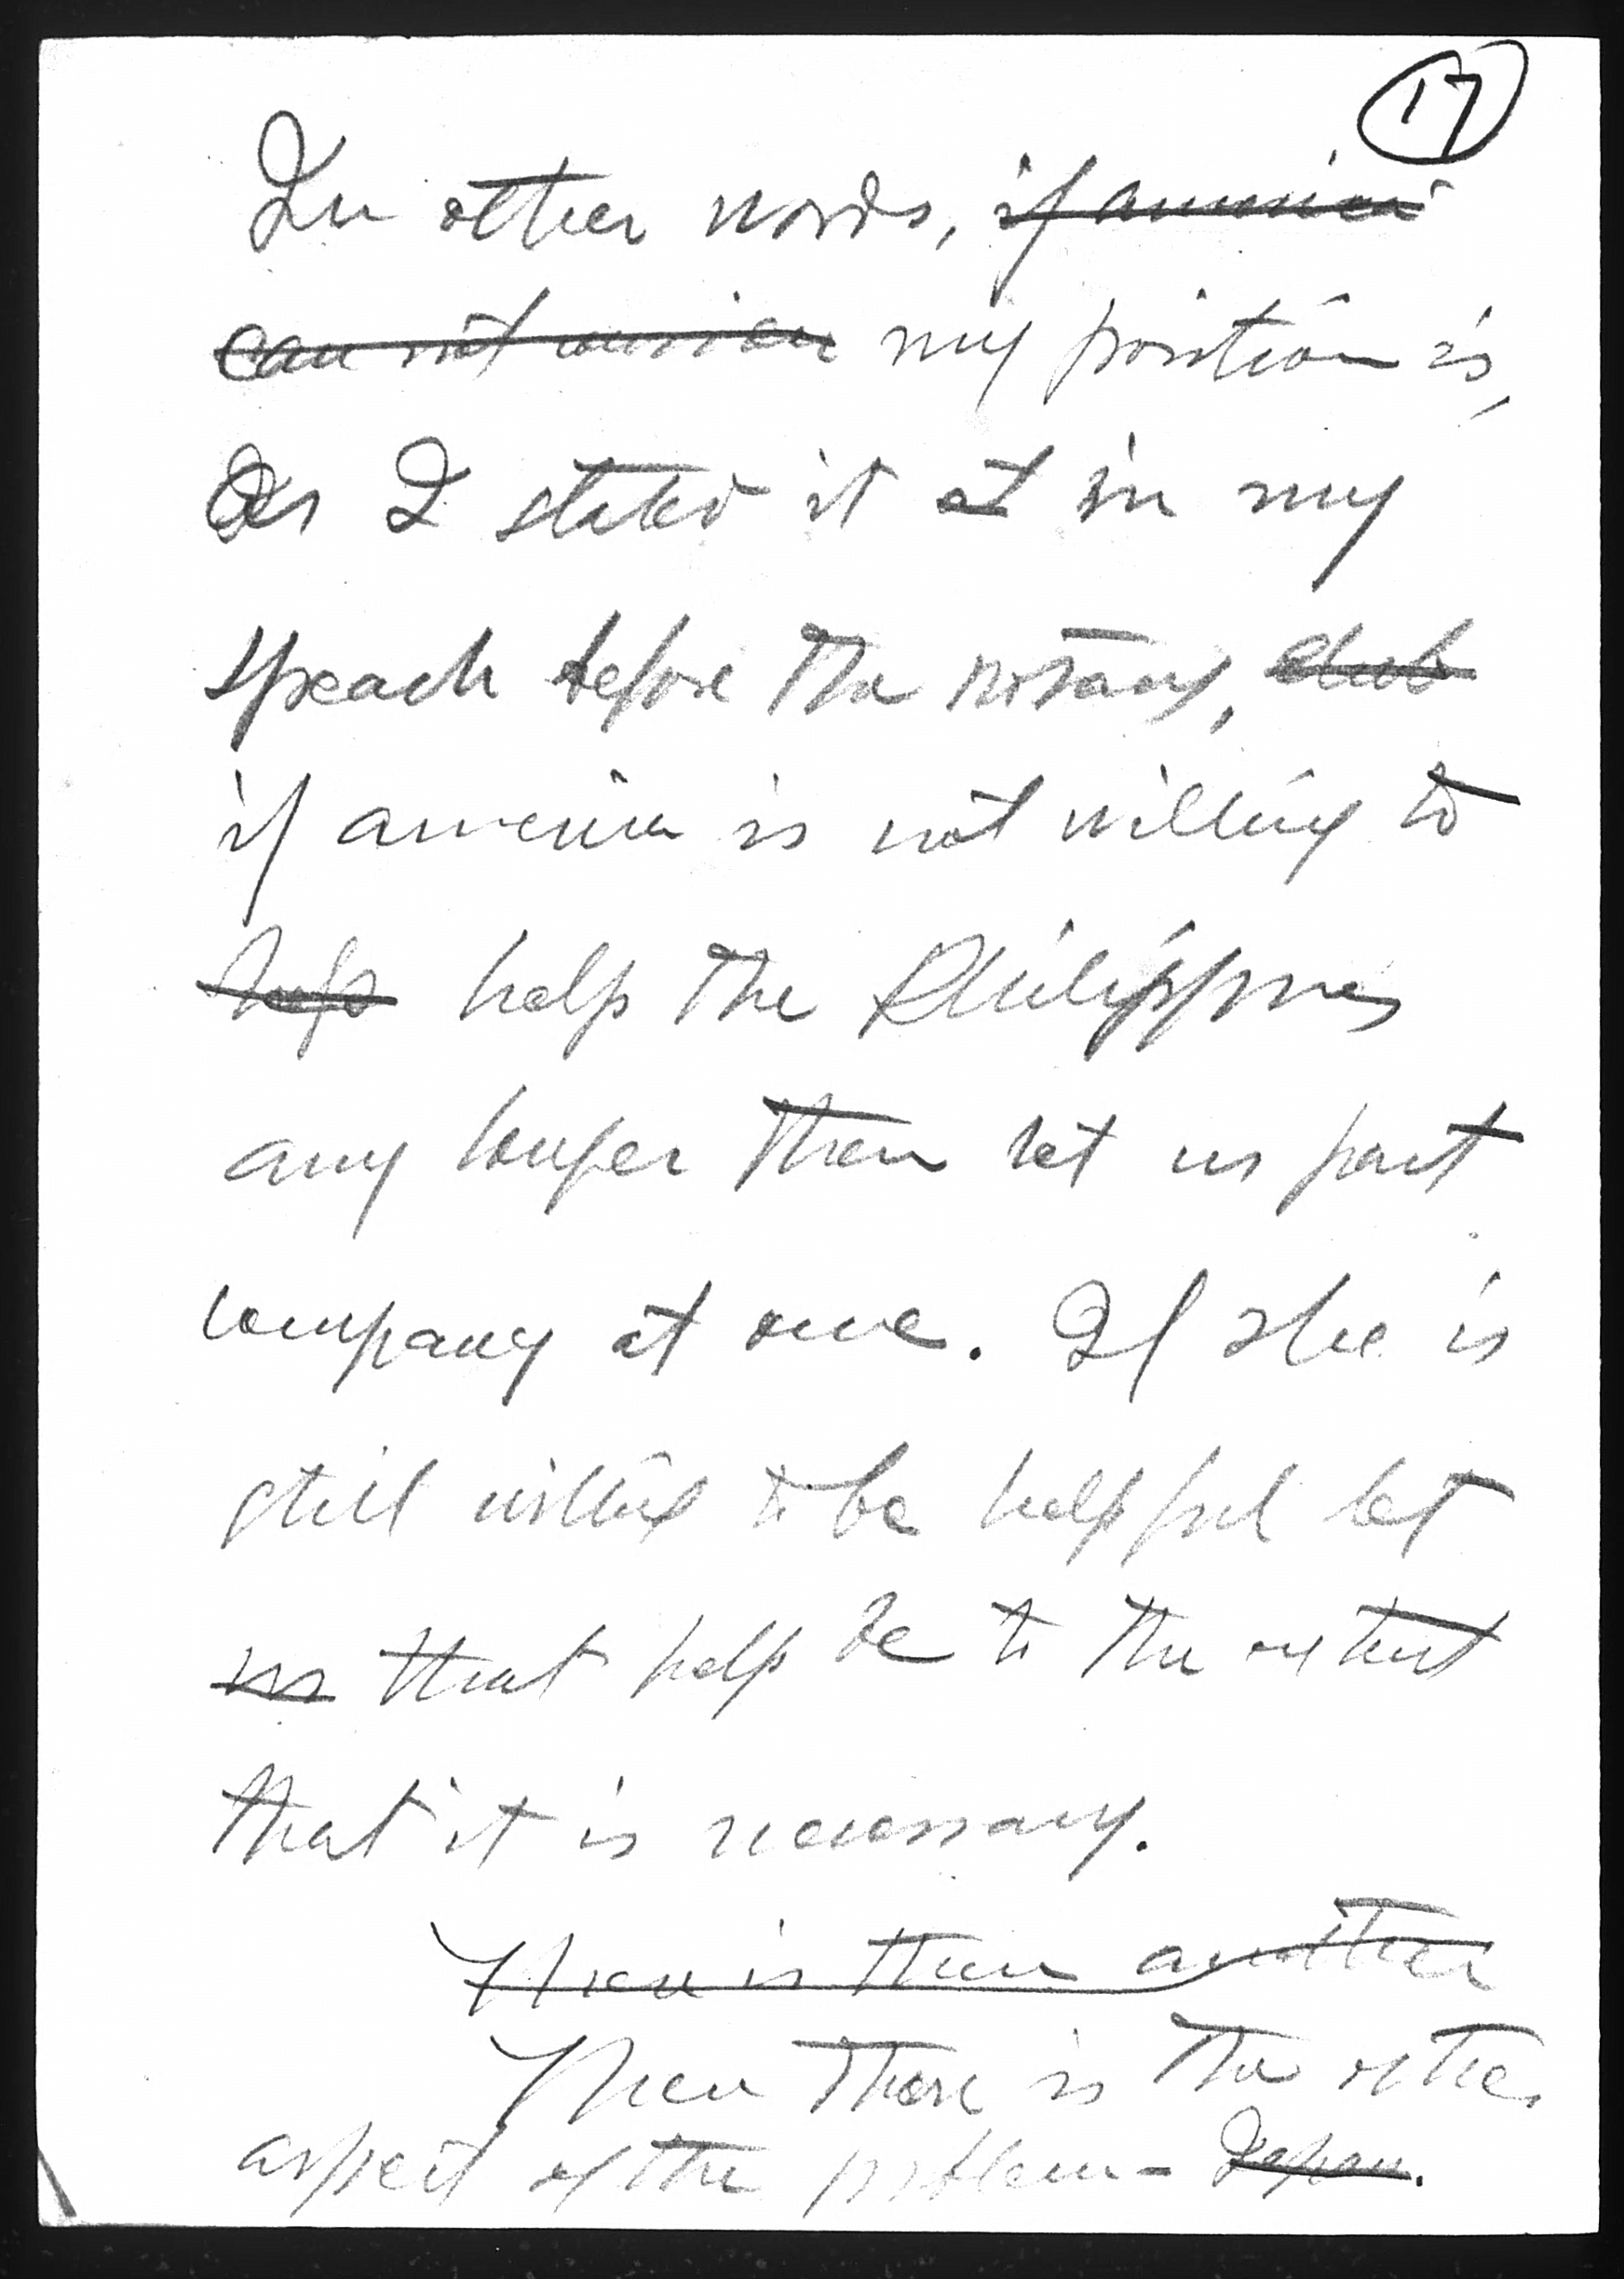 17
In other words, if america
can not consider my position is,
as I stated it at in my
speech before the rotary, club
if america is not willing to
help help the Philippines
any longer then let us part
company at once. If she is
still willing to be helpful let
us that help be to the extent
that it is necessary.
There is then another
Then there is the other
aspect of the problem - Japan.